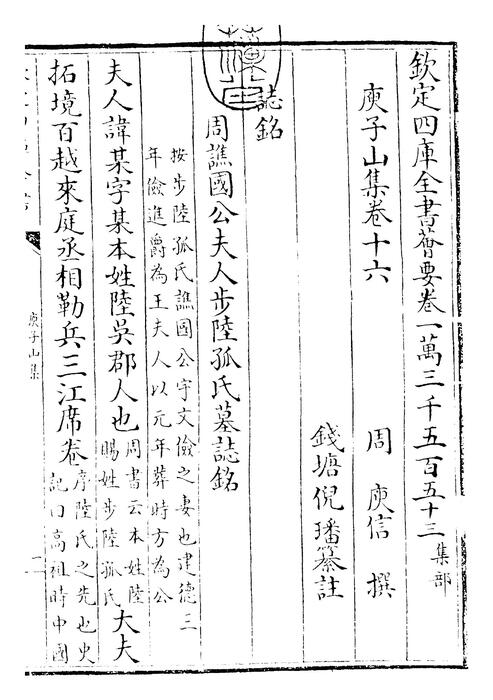 欽定四庫全書薈要卷一萬三千五百五十三集部
庾子山集卷十六
周　庾信　撰
錢塘倪璠纂註
誌銘
周譙國公夫人步陸孤氏墓誌銘
按步陸孤氏譙國公宇文儉之妻也建德三
年儉進爵為王夫人以元年葬時方為公
夫人諱某字某本姓陸吳郡人也周書云本姓陸賜姓步陸孤氏大夫
拓境百越來庭丞相勒兵三江席卷序陸氏之先也史記曰高祖時中國
庾子山集